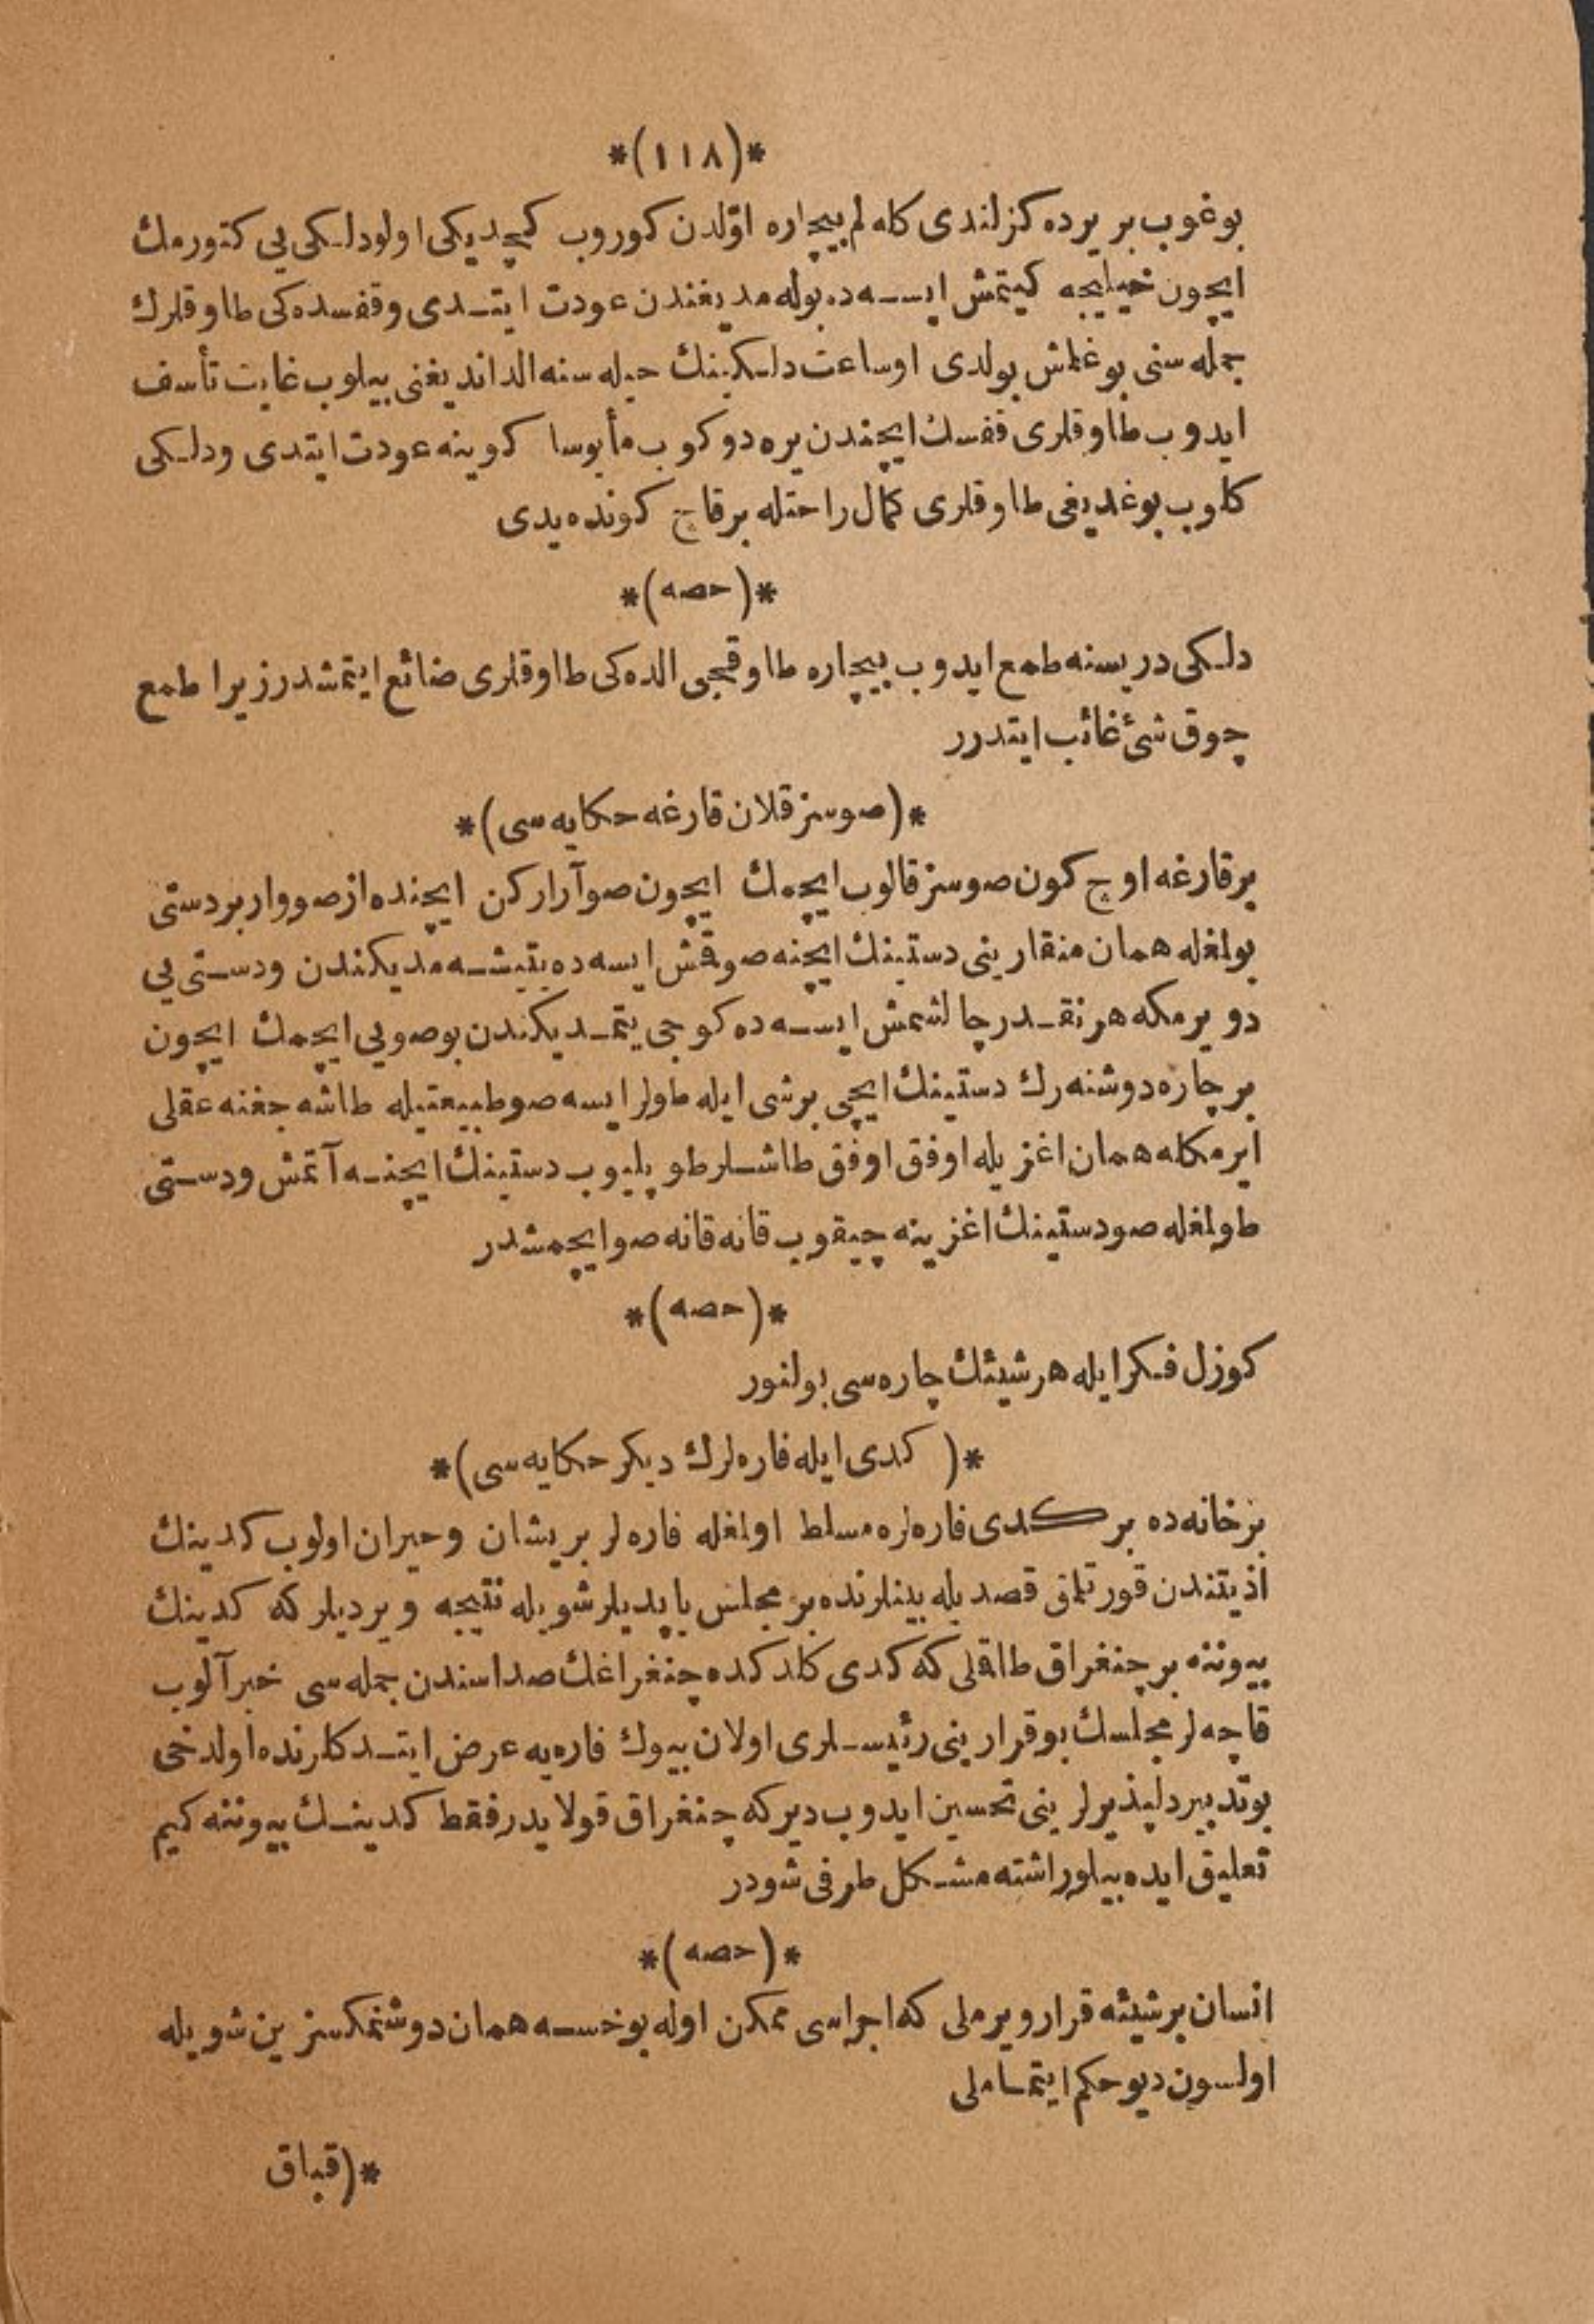 *(١١٨)*
بوغوب بر يرده كزلندى كله لم بيچاره اوّلدن كوروب كچديكى اولو دلكى يى كتورمك
ايچون خيليجه كيتمش ايسه ده بوله مديغندن عودت ايتدى وقفسده كى طاوقلرك
جمله سنى بوغلمش بولدى اوساعت دلكينك حيله سنه الدانديغنى بيلوب غايت تأسف
ايدوب طاوقلرى قفسك ايچندن يره دوكوب مأيوسا كوينه عودت ايتدى ودلكى
كلوب بوغديغى طاوقلرى كمال راحتله برقاچ كونده يدى
*(حصه)*
دلكى دريسنه طمع ايدوب بيچاره طاوقجى الده كى طاوقلرى ضائع ايتمشدر زيرا طمع
چوق شئ غائب ايتدرر
*(صوسز قلان قارغه حكايه سى)*
برقارغه اوچ كون صوسز قالوب ايچمك ايچون صو آراركن ايچنده از صو وار بردستى
بولمغله همان منقارينى دستينك ايچنه صوقمش ايسه ده يتيشه مديكندن ودستى يى
دويرمكه هرنقدر چالشمش ايسه ده كوجى يتمديكندن بوصويى ايچمك ايچون
برچاره دوشنه رك دستينك ايچى برشى ايله طولر ايسه صو طبيعتيله طاشه جغنه عقلى
ايرمكله همان اغزيله اوفق اوفق طاشلر طوپليوب دستينك ايچنه آتمش ودستى
طولمغله صو دستينك اغزينه چيقوب قانه قانه صو ايچمشدر
*(حصه)*
كوزل فكر ايله هر شيئك چاره سى بولنور
*(كدى ايله فاره لرك ديكر حكايه سى)*
برخانه ده بر كدى فاره لره مسلط اولمغله فاره لر پريشان وحيران اولوب كدينك
اذيتندن قورتلمق قصديله بينلرنده بر مجلس ياپديلر شويله نتيجه ويرديلر كه كدينك
بيوننه بر چنغراق طاقلى كه كدى كلدكده چنغراغك صداسندن جمله سى خبر آلوب
قاچه لر مجلسك بوقرارينى رئيسلرى اولان بيوك فاره يه عرض ايتدكلرنده اولدخى
بوتدبير دلپذيرلرينى تحسين ايدوب ديركه چنغراق قولايدر فقط كدينك بيوننه كيم
تعليق ايده بيلور اشته مشكل طرفى شودر
*(حصه)*
انسان برشيئه قرار ويرملى كه اجراسى ممكن اوله يوخسه همان دوشنمكسزين شويله
اولسون ديو حكم ايتمامه لى
*(قباق